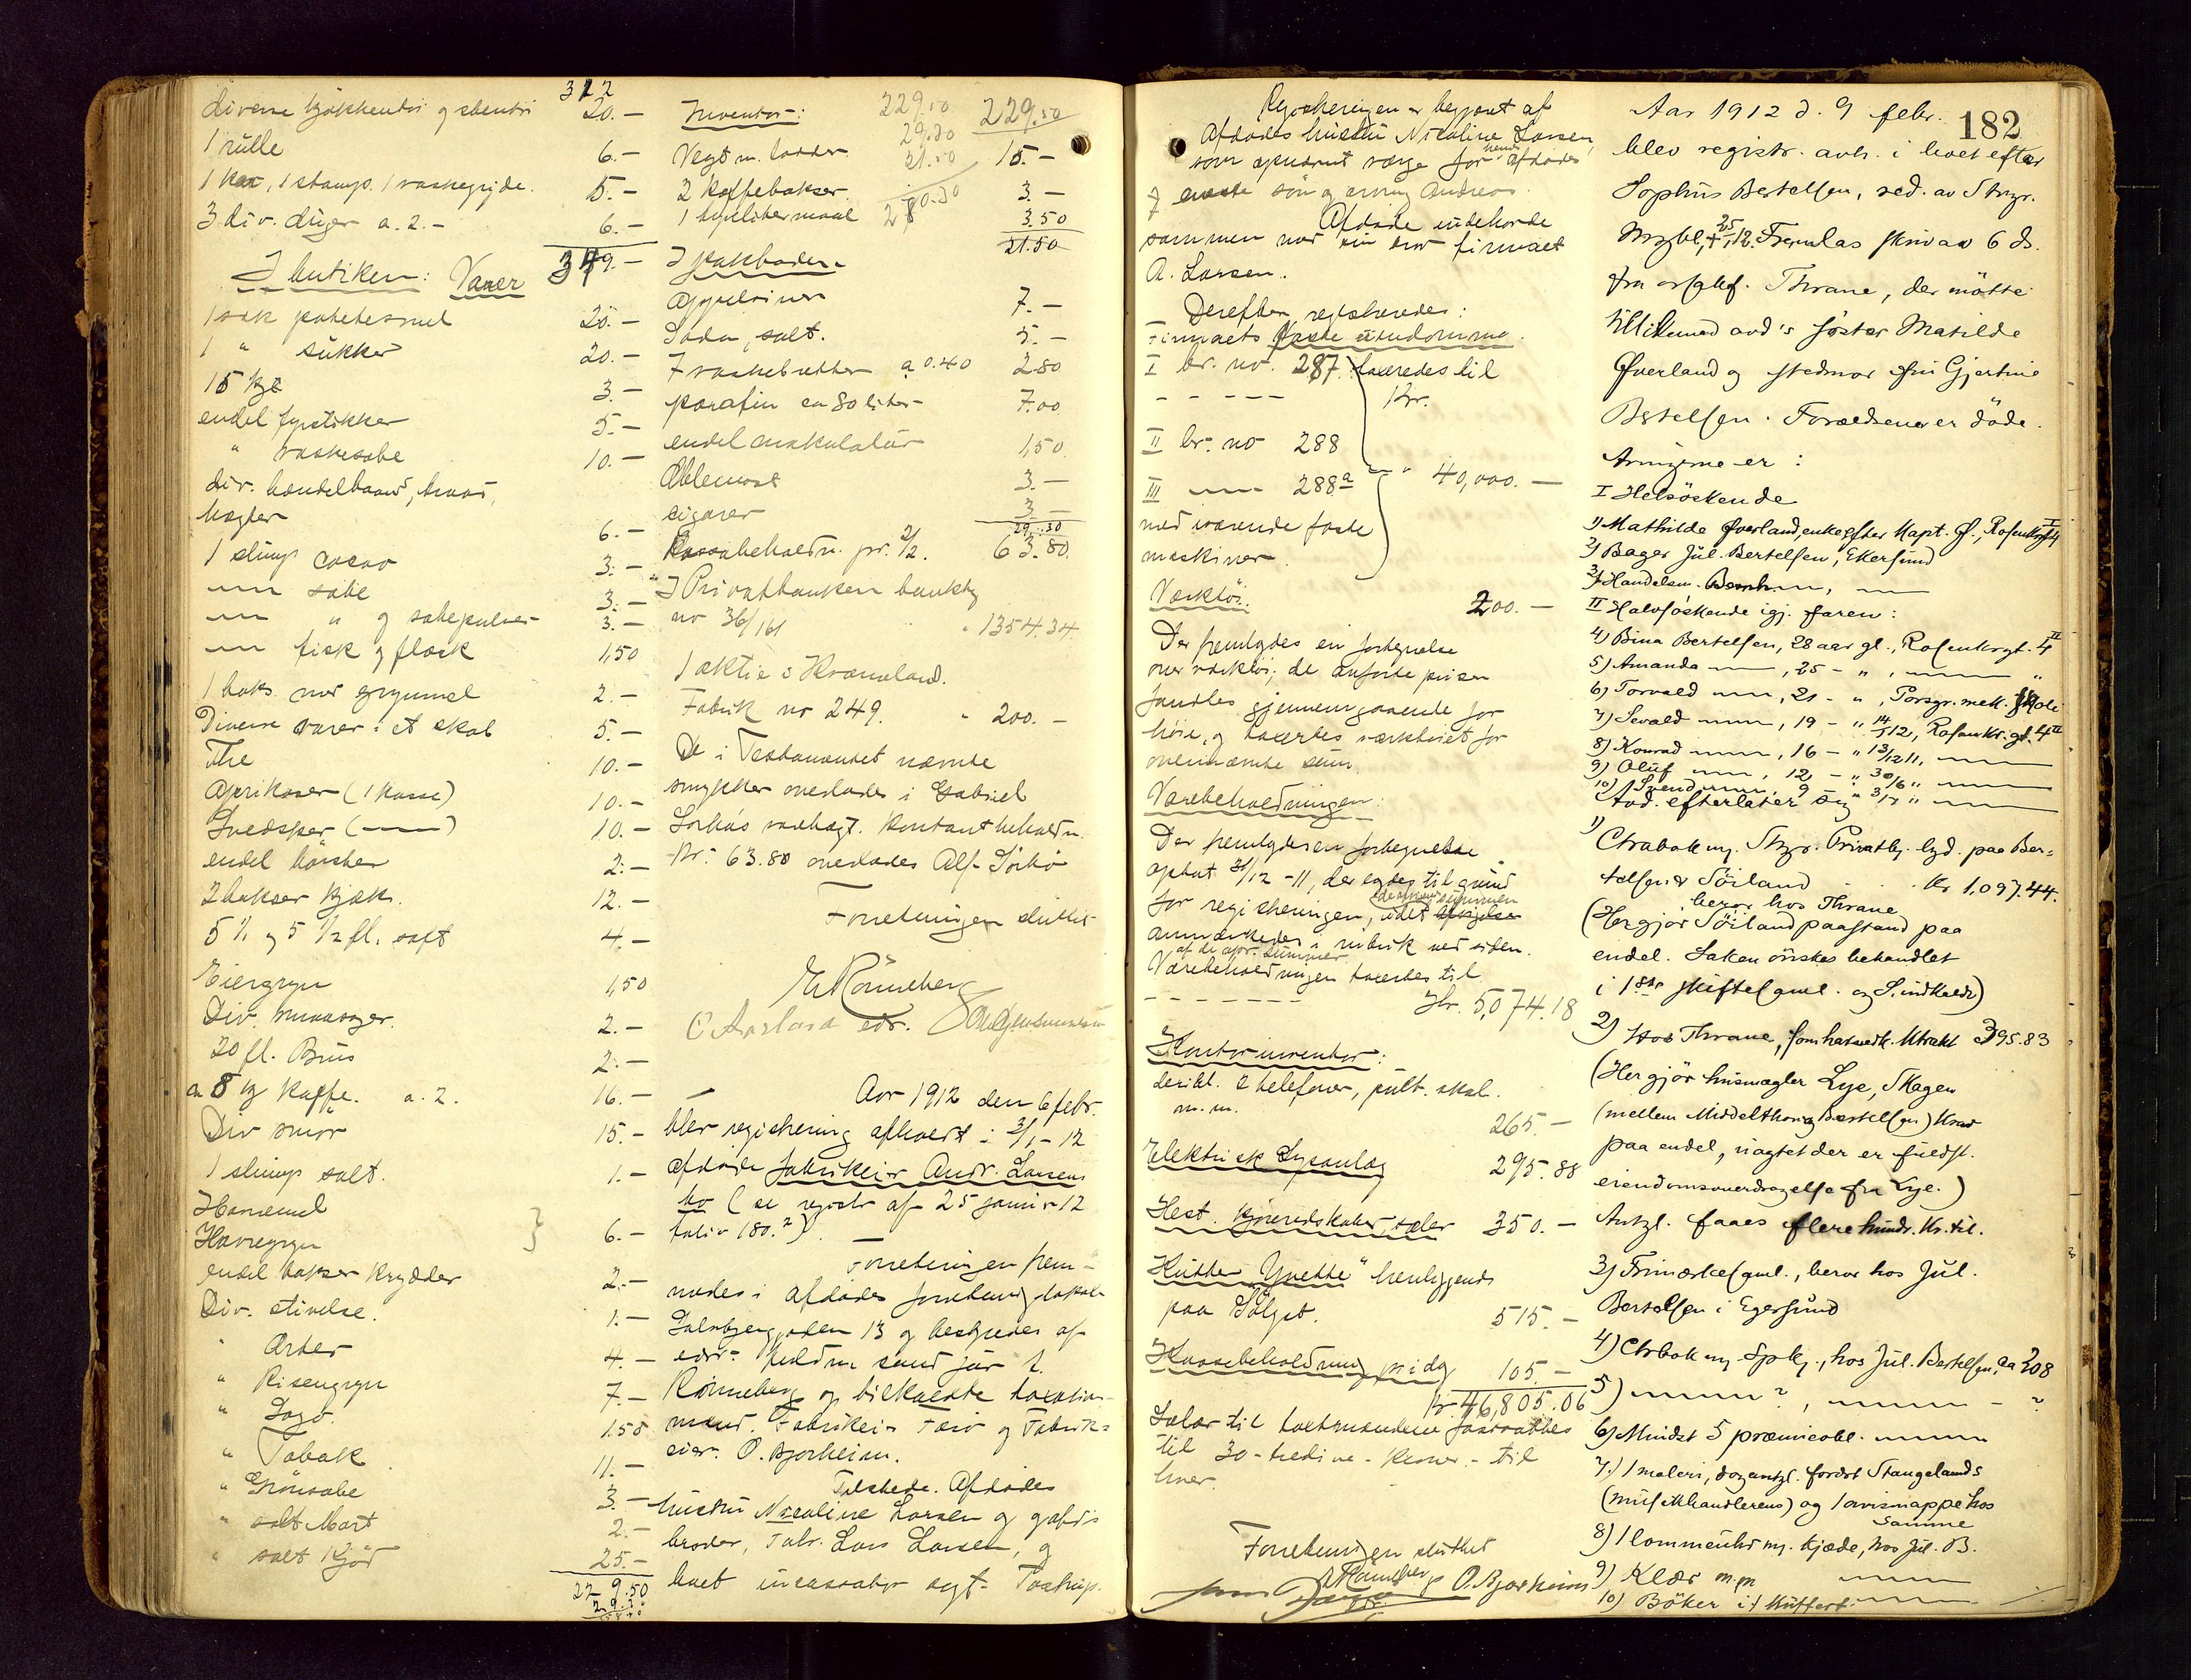 312
diverse kjøkkentøi og stentøi 20.-
1 rulle 6.-
1 kar, 1 stamp. 1 vaskegryde. 5.-
3 div. duger a. 2.- 6.-
349.-
I butiken: Varer
1 sæk potetesmel 25.-
1 " sukker 20.-
15 kg 3.-
endel fyrstikker 5.-
" vaskesæbe 10.-
div. haandelbaand, traad,
hægter 6.-
1 slump cacao 3.-
— sæbe 3.-
— " og sæbepulver 3.-
— fisk og flæsk 1,50
1 boks. med grynmel 2.-
Diverse varer i et skab 5.-
The 10.-
Aprikoser (1 kasse) 10.-
Svedsker (—) 10.-
endel børster 2.-
2 bokser kjæks. 12.-
5 1/1 og 5 1/2 fl. saft 4.-
Biergryn 1,50
Div. 2.-
20 fl. Brus 2.-
ca 8 kg kaffe. a. 2. 16.-
Div smør 15.-
1 slump salt. 1.-
Havremel
Havregryn 6.-
endel bokser krydder 2.-
Div. stivelse. 1.-
" Ærter 4.-
" Risengryn 7.-
" Sago. 1.50
" Tobak 11.-
" Grønsæbe 3.-
" salt Mort 2.-
" salt kjød 25.-
229.50
Inventar: 229.50 229.50
29.30
Vegt m. lodder. 21.50 15.-
2 kaffebokser. 3.-
1 maal 3.50
21.50
I pakboden
appelsiner 7.-
Soda, salt. 5.-
7 vaskebøtter a 0.40 2.80
parafin ca 80 liter 7.00
endel makulatur 1,50
Æblemost 3.-
cigarer 3.-
29.30
Kassabeholdn. pr. 2/2. 63.80.
I Privatbanken bankbg
no 36/161 " 1354.34
1 aktie i
Fabrik no 249. " 200.-
De i Testamentet nævnte
smykker overlades i Gabriel
Sørbøs varetægt. Kontantbeholdn.
Kr. 63.80 overlades Alf Sørbø
Forretningen sluttet
E Rönneberg
Aar 1912 den 6 febr.
blev registrering afholdt i 3/1-12
afdøde fabrikeier Andr. Larsens
bo (se registr af 25 januar 12
folio 180.2).
Forretningen frem-
mødes i afdødes forretningslokale
13 og bestyredes af
edsv. fuldm sand jur t.
Rönneberg og tilkaldte taxations-
mænd. Fabrikeier Færø og Fabrik-
eier. O. Bjorheim.
Tilstede. Afdødes
hustru Nicoline Larsen og afdøs
broder, Fabr. Lars Larsen, og
boet incassator agt. Tostrup.
Registreringen er begjært af
Afdødes hustru Nicoline Larsen,
som opnævnt værge for hendes afdødes
eneste søn og arving Andreas.
Afdøde indehavde
sammen med sin bror firmaet
A. Larsen.
Derefter registreredes:
Firmaets faste eiendomme.
I br. no. 287. taxeredes til
- - - - - Kr.
II br. no 288
III — 288a " 40,000.-
med iværende faste
maskiner.
Værktøi. 200.-
Der fremlagdes en fortegnelse
over værktøi; de anførte priser
fandtes gjennemgaaende for
høie, og taxertes værktøiet for
ovennævnte sum.
Varebeholdningen:
Der fremlagdes en fortegnelse
optat 31/12 -11, der lagdes til grund
for registreringen, idet
anmærkedes i rubrik ved siden.
af de opr. summer
Varebeholdningen taxertes til
- - - - - - - Kr. 5,074.18
Kontorinventar:
deribl. 2 telefoner, pult. skab.
m.m. 265.-
Elektrisk Lysanlæg 295.88
Hest. kjøreredskaber, seler 350.-
Kutter "Yvette" henliggende
paa Sølyst. 515.-
Kassebeholdning pr idag 105.-
Kr. 46,805.06
Salær til taxtmændene fastsattes
til 30 - tredive - kroner - til
hver.
Forretningen sluttet
E Rönneberg O. Bjorheim
182
Aar 1912 d. 9 febr.
blev registr. avh. i boet efter
Sophus Bertelsen, sed. av Stvgr.
Mrgbl, + 25/1 12. Fremlas skriv av 6 ds.
fra orfghf. Thrane, der mötte
tillikemed avd's söster Matilde
Øverland og stedmor fru Gjertine
Bertelsen. Forældrene er döde.
Arvingerne er:
I Helsöskende
1) Mathilde Øverland, enke efter Kapt. Ø., Rosenkrgt 4 II
2) Bager Jul. Bertelsen, Ekersund
3) Handelsm. Bernh. —, —
II Halvsöskende igj. faren:
4) Bina Bertelsen, 28 aar gl., Rosenkrgt. 4 II
5) Amanda —, 25 - ", — "
6) Torvald —, 21 - ", Porsgr. mek. skole
7) Sevald —, 19 - " 14/5 12, Rosenkr.gt. 4 II
8) Konrad —, 16 - " 13/12 11, —
9) Oluf —, 12 - " 30/6 " —
10) Svend —, 9 - " 3/7 " —
Avd. efterlater sig
1) Ctrabok m. Stvgr. Privatb. lyd. paa Ber-
telsen & Söiland . . Kr 1.097.44.
beror hos Thrane
(Her gjör Söiland paastand paa
endel. Saken önskes behandlet
i 1ste skiftesaml. og S. indkaldt)
2) Hos Thrane, 395.83
(Her gjör husmægler Lye, Skagen
(mellem Middelthon og Bertelsen) krav
paa endel, uagtet der er fuldst.
eiendomsoverdragelse fra Lye.)
Antgl. faaes flere hundr. Kr. til.
3) Frimærkesaml., beror hos Jul.
Bertelsen i Egersund
4) Ctrbok m. Spk., hos Jul. Bertelsen, ca 208
5) — ?, — - ?
6) Mindst 5 præmieobl. —
7.) 1 maleri, dog antgl. fordret Stangelands
(musikhandlerens) og 1 avismappe hos
samme
8) 1 lommeuhr m. kjæde, hos Jul. B.
9) Klær m.m —
10) Böker i 1 kuffert —